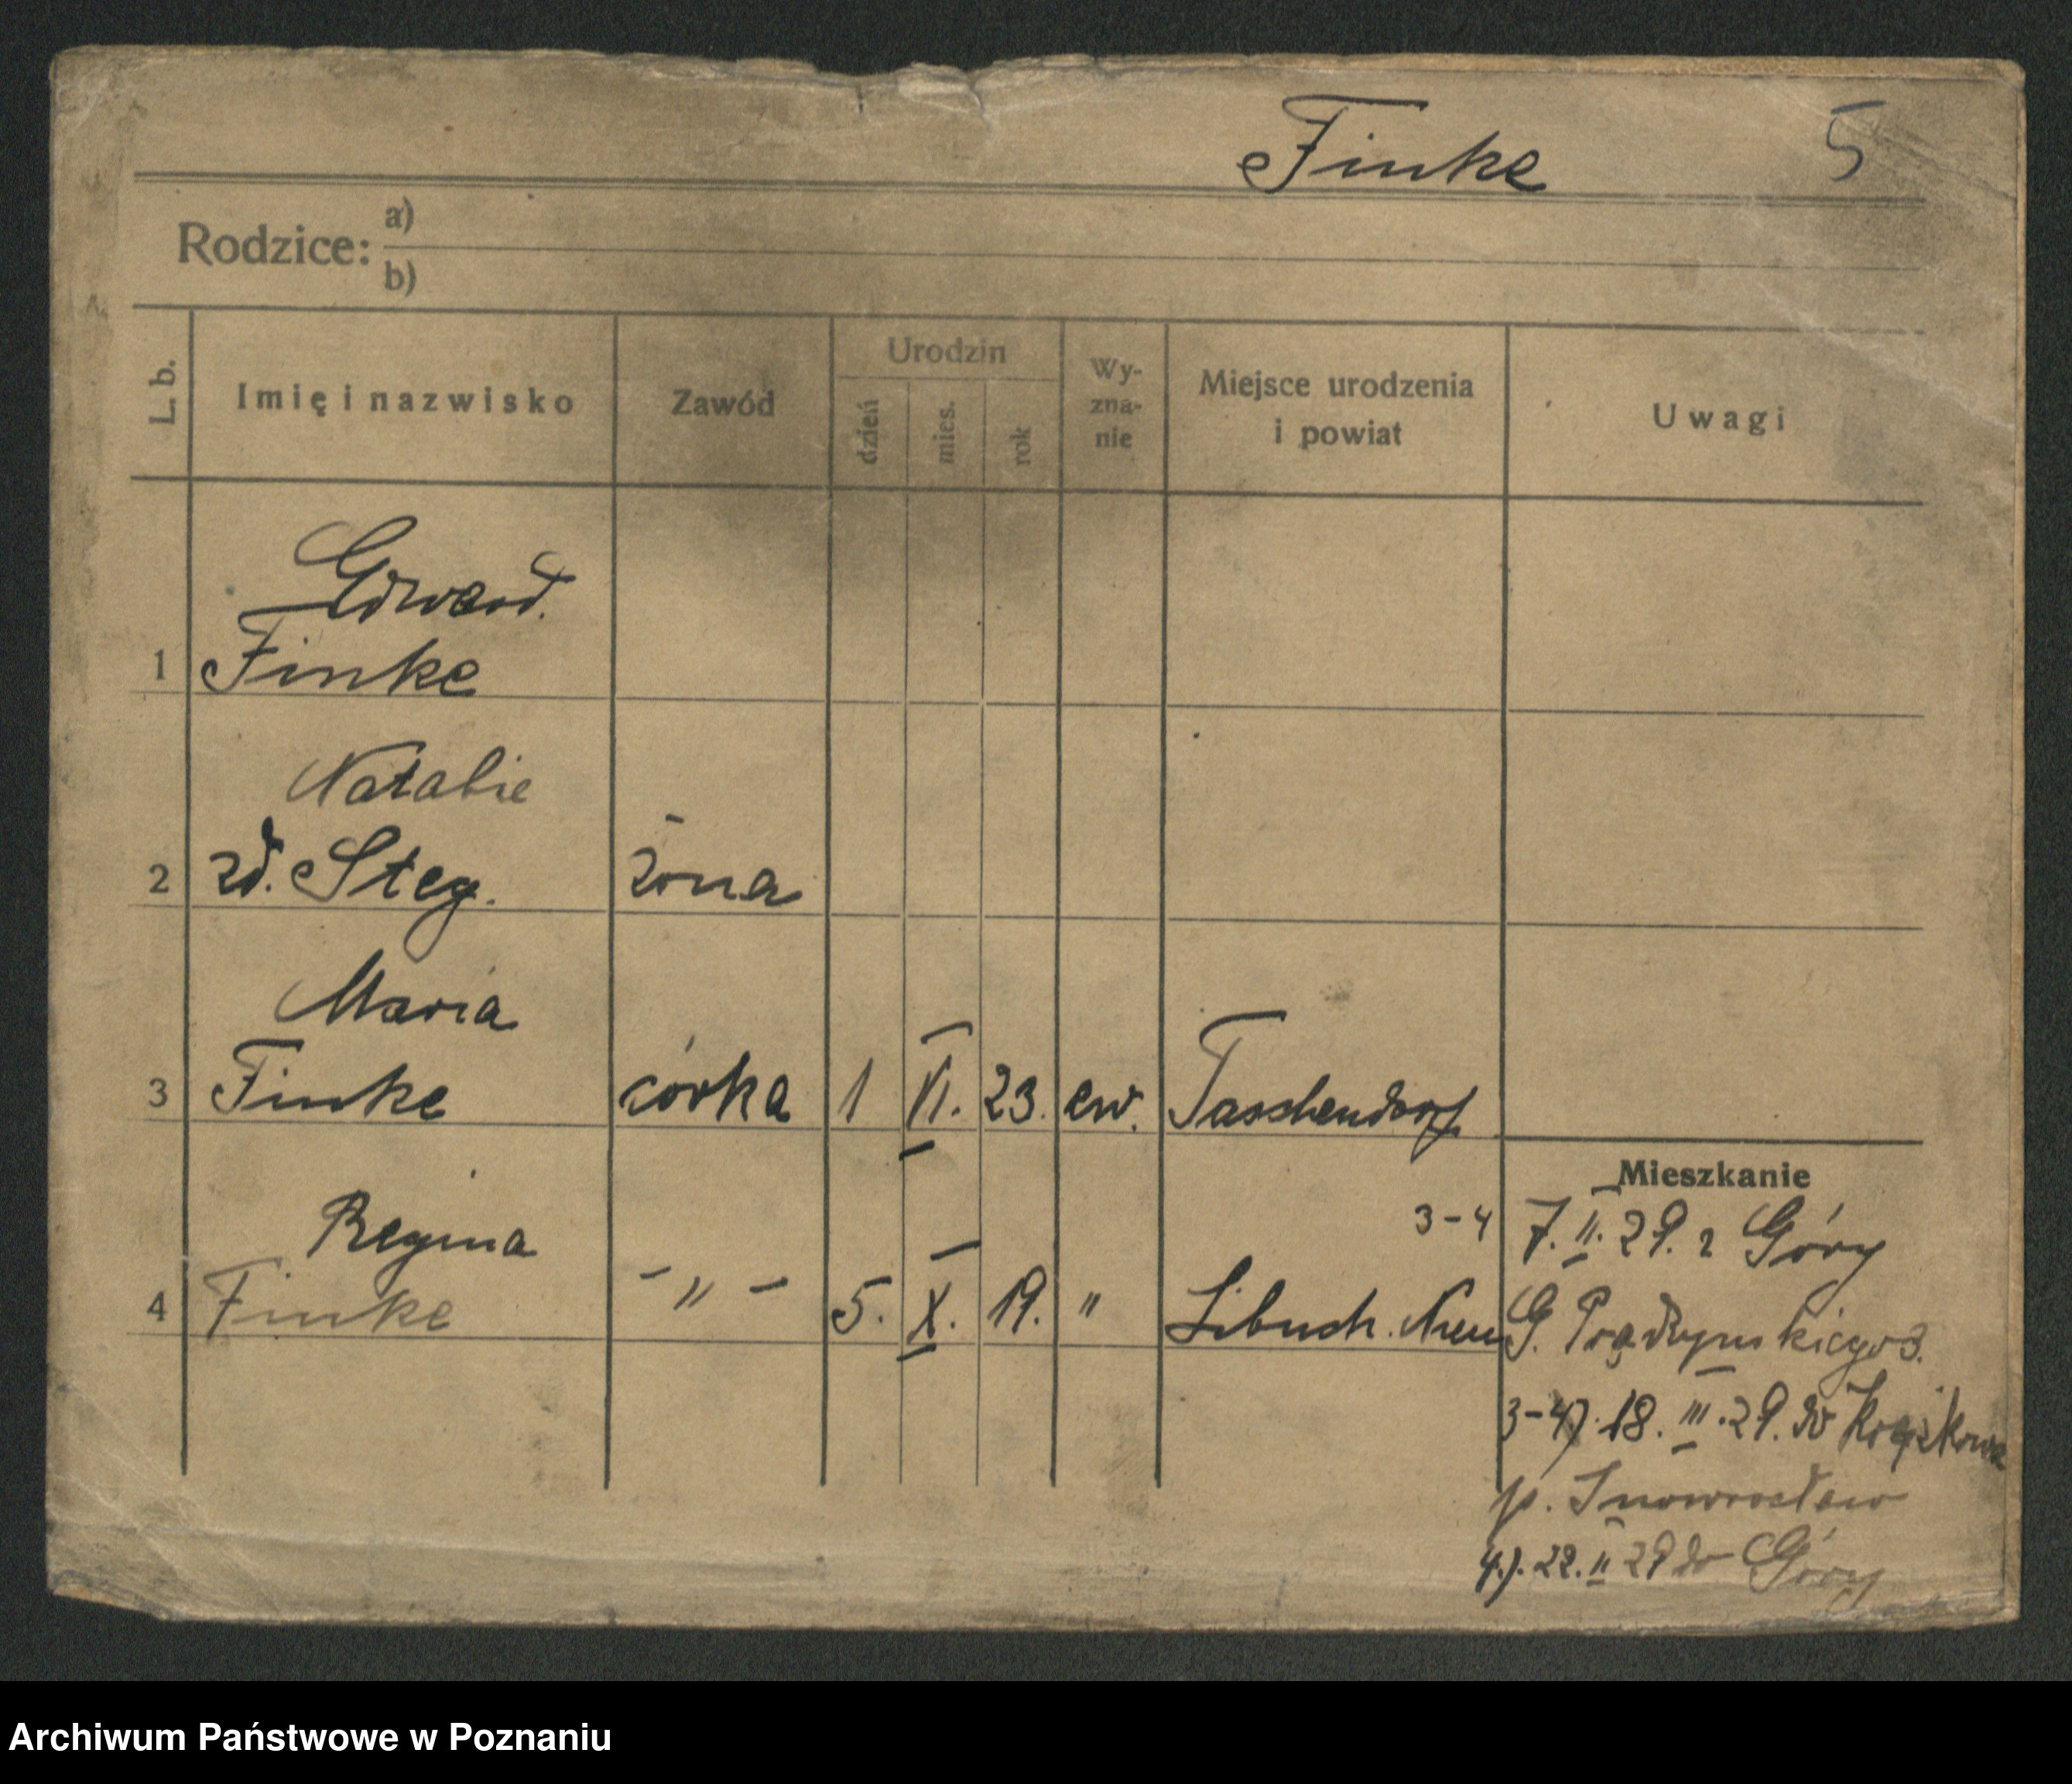 Finke 5
Rodzice: a)
b)
L. b.
Imię i nazwisko
Zawód
Urodzin
dzień
mies.
rok
Wy-
zna-
nie
Miejsce urodzenia
i powiat
Uwagi
Edward.
1 Finke
Natalie
2 zd. Steg. żona
Maria
3 Finke córka 1 VI. 23. ew. Taschendorf
Regina
4 Finke - " - 5. X. 19. " Libuch.
Mieszkanie
3-4 7. II. 29. z Góry
G. Prądzyńskiego 3.
3-4). 18. III. 29. do
p. Inowrocław
4.). 22. II 29 do Góry
Archiwum Państwowe w Poznaniu